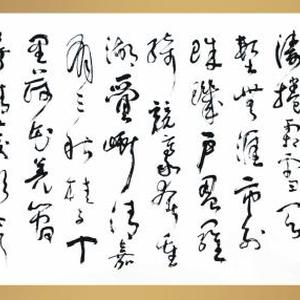 濤捲霜雪天
塹無涯市列
珠璣戶盈羅
綺競豪奢重
湖疊巘清嘉
有三秋桂子十
里荷花羌管
弄晴菱歌泛